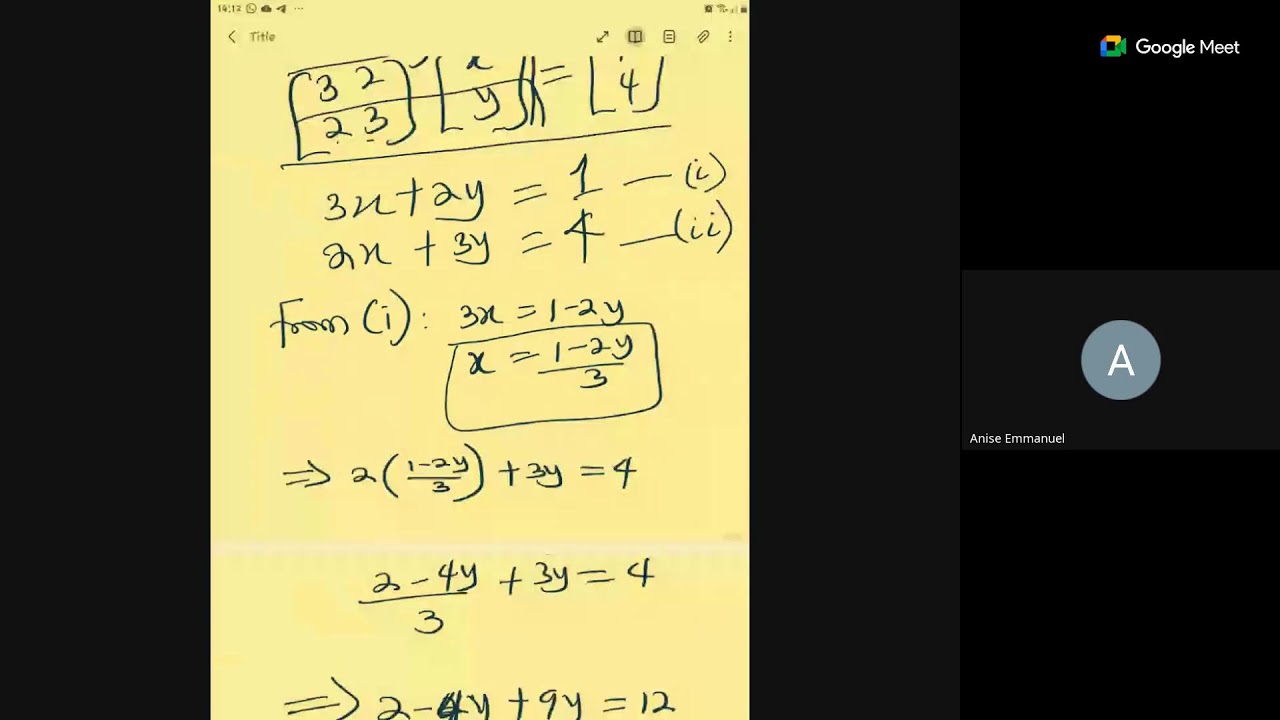 14:12
Title
Google Meet
[3 2] [x] = [1]
[2 3] [y] [4]
3x+2y = 1 — (i)
2x + 3y = 4 — (ii)
from (i): 3x = 1-2y
x = (1-2y)/3
⇒ 2((1-2y)/3) + 3y = 4
(2-4y)/3 + 3y = 4
⇒ 2-4y + 9y = 12
A
Anise Emmanuel